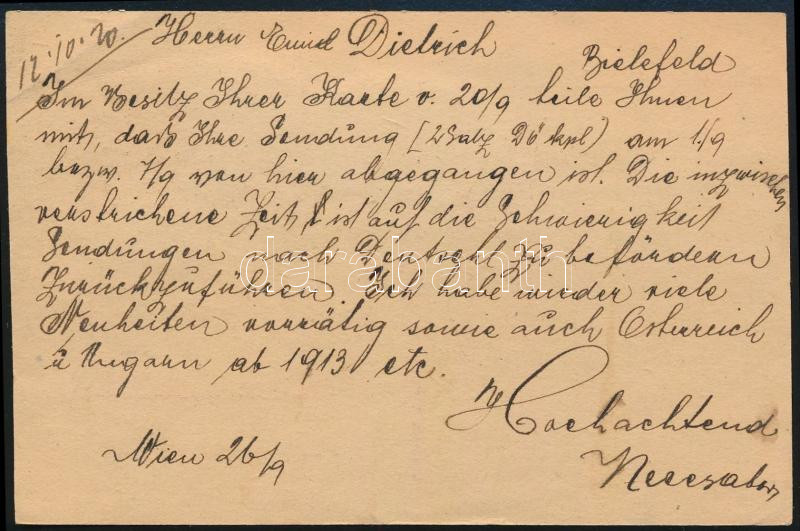 12.10.20.
Herrn Emil Dietrich
Bielefeld
Im Besitz Ihrer Karte v. 20/9 teile Ihnen
mit, daß Ihre Sendung (2 Satz Dö kpl) am 1./9
bezw. 7/9 von hier abgegangen ist. Die inzwischen
verstrichene Zeit ist auf die Schwierigkeit
Sendungen nach Deutschl zu befördern
zurückzuführen. Ich habe wieder viele
Neuheiten vorrätig sowie auch Österreich
u Ungarn ab 1913 etc.
Hochachtend
Wien 26/9
darabanth